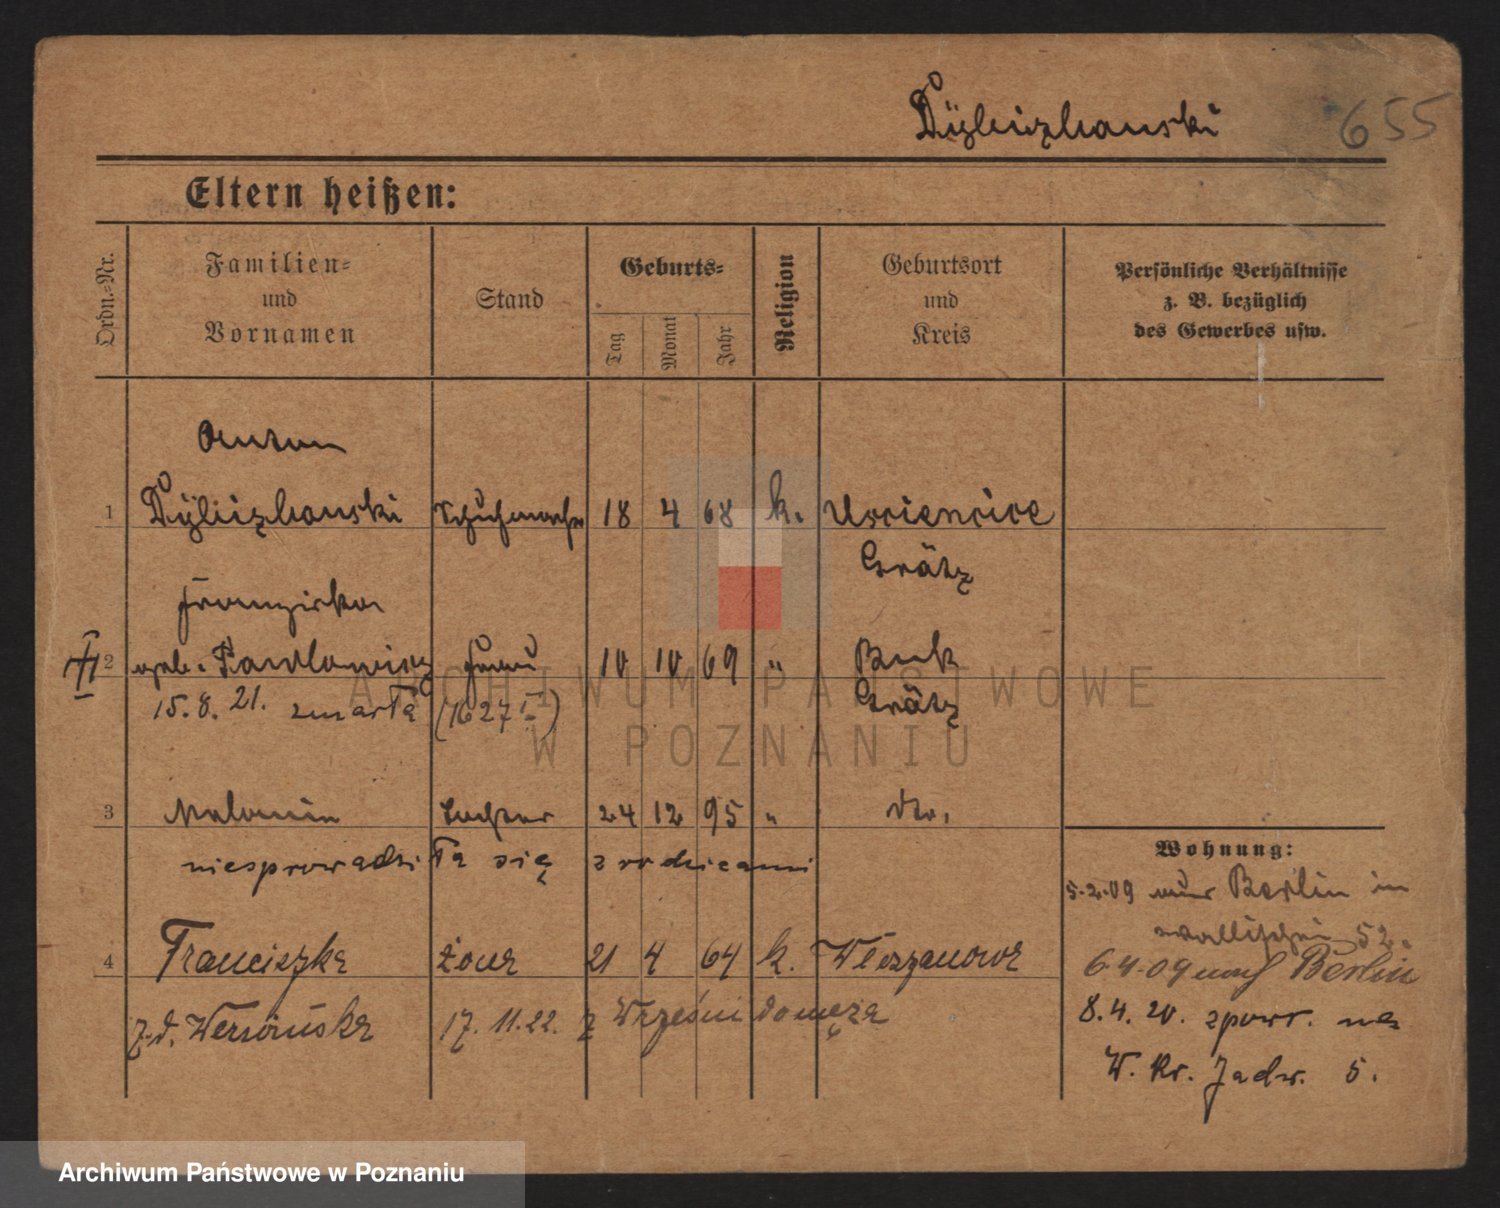 655
Eltern heißen:
Ordn.-Nr.
Familien- und Vornamen
Stand
Geburts-
Tag
Monat
Jahr
Religion
Geburtsort und Kreis
Persönliche Verhältnisse z. B. bezüglich des Gewerbes usw.
Anton
1 Schuhmacher 18 4 68 k.
Grätz
Franziska
2 geb. Pawlowicz Frau 10 10 69 " Buk
15.8.21. zmarła (1627 I) Grätz
3 Tochter 24 12 95 " do.
niesprowadziła się z rodzicami
Wohnung:
5.2.09 Berlin in
Wallischei 52.
4 Franciszka żona 21 4 64 k.
6.4.09 nach Berlin
z d. 17.11.22. z Wrześni do męża
8.4.20. z powr. na
W. Kr. Jadw. 5.
ARCHIWUM PAŃSTWOWE
W POZNANIU
Archiwum Państwowe w Poznaniu